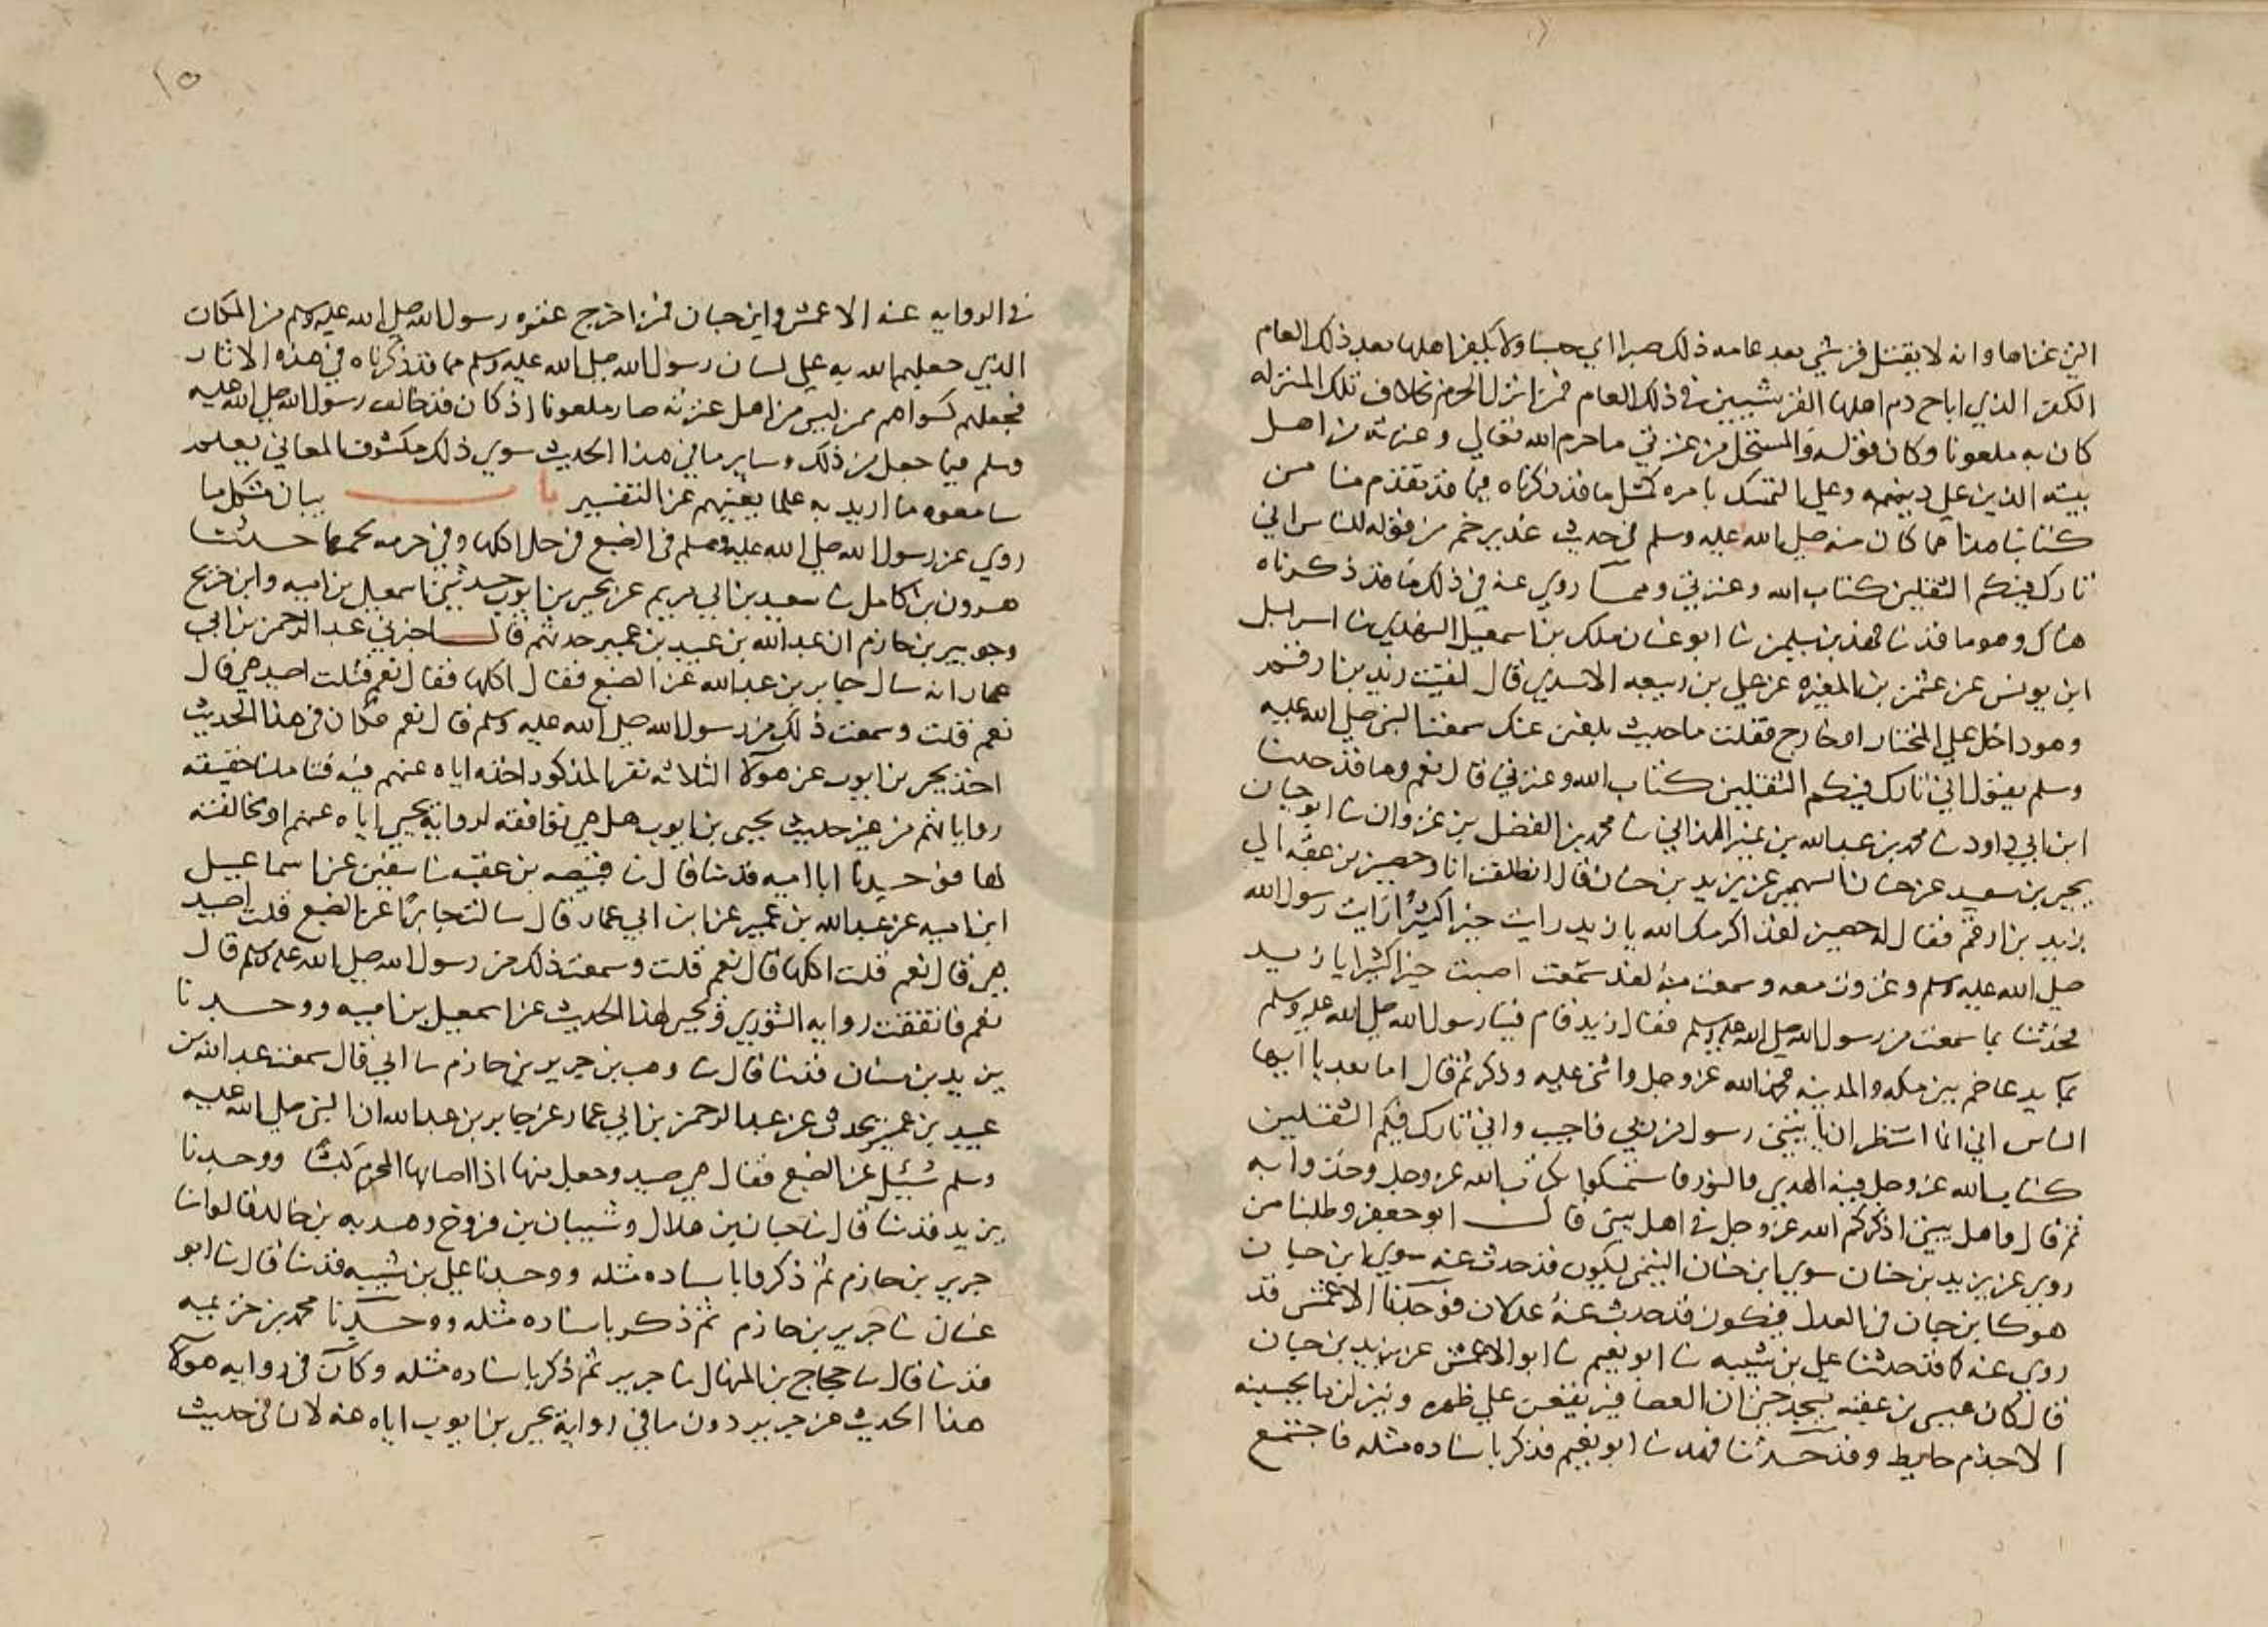 التي عناها وانه لا يقتل قرشي بعد عامه ذلك صبرا اي حبسا ولا يكفر اهلها بعد ذلك العام
الكفر الذي اباح دم اهلها القرشيين في ذلك العام فمن انزل الحرم بخلاف تلك المنزله
كان به ملعونا وكان قوله والمستحل من عترتي ما حرم الله تعالي وعترته من اهل
بيته الذين علي دينه وعلي التمسك بامره كمثل ما قد ذكرناه فيما قد تقدم منا من
كتابنا هذا مما كان منه صلي الله عليه وسلم في حديث غدير خم من قوله للناس اني
تارك فيكم الثقلين كتاب الله وعترتي ومما روي عنه في ذلك مما قد ذكرناه
هناك وهو ما قد نا فهد بن سليمن نا ابو غسان ملك بن اسمعيل النهدي نا اسرايل
ابن يونس عن عثمن بن المغيره عن علي بن ربيعه الاسدي قال لقيت زيد بن ارقم
وهو داخل علي المختار او خارج فقلت ما حديث بلغني عنك سمعت النبي صلي الله عليه
وسلم يقول اني تارك فيكم الثقلين كتاب الله وعترتي قال نعم وما قد حدثنا
ابن ابي داود نا محمد بن عبد الله بن نمير الهمداني نا محمد بن الفضل بن غزوان نا ابو حيان
يحيي بن سعيد عن حيان التيمي عن يزيد بن حيان قال انطلقت انا وحصين بن عقبه الي
زيد بن ارقم فقال له حصين لقد اكرمك الله يا زيد رايت خيرا كثيرا رايت رسول الله
صلي الله عليه وسلم وغزوت معه وسمعت منه لقد سمعت اصبت خيرا كثيرا يا زيد
فحدثنا بما سمعت من رسول الله صلي الله عليه وسلم فقال زيد قام فينا رسول الله صلي الله عليه وسلم
بماء يدعا خم بين مكه والمدينه فحمد الله عز وجل واثني عليه وذكر ثم قال اما بعد يا ايها
الناس اني انما انتظر ان ياتيني رسول من ربي فاجيب واني تارك فيكم الثقلين
كتاب الله عز وجل فيه الهدي والنور فاستمسكوا بكتاب الله عز وجل وخذوا به
ثم قال واهل بيتي اذكركم الله عز وجل في اهل بيتي قال ابو جعفر وطلبنا من
روي عن يزيد بن حيان سوي ابن حيان التيمي ليكون قد حدث عنه سوي ابن حيان
هو كابن حيان في العدل فيكون قد حدث عنه عدلان فوجدنا الاعمش قد
روي عنه كما قد حدثنا علي بن شيبه نا ابو نعيم نا ابو الاعمش عن يزيد بن حيان
قال كان عيسي بن عقبه يسجد حتي ان العصافير يقعن علي ظهره وينزلن ما يحسبنه
الا جذم حايط وقد حدثنا فهد نا ابو نعيم فذكر باسناده مثله فاجتمع
١٥
في الروايه عنه الاعمش وابن حيان فمن اخرج عتره رسول الله صلي الله عليه وسلم من المكان
الذي جعلهم الله به علي لسان رسول الله صلي الله عليه وسلم مما قد ذكرناه في هذه الاثار
فجعلهم كسواهم ممن ليس من اهل عترته صار ملعونا اذ كان قد خالف رسول الله صلي الله عليه
وسلم فيما جعل من ذلك وساير ما في هذا الحديث سوي ذلك مكشوف المعاني يعلم
سامعوه ما اريد به علما يغنيهم عن التفسير باب بيان مشكل ما
روي عن رسول الله صلي الله عليه وسلم في الضبع في حل اكلها وفي حرمه لحمها حدثنا
هرون بن كامل نا سعيد بن ابي مريم عن يحيي بن ايوب حدثني اسمعيل بن اميه وابن جريج
وجرير بن حازم ان عبد الله بن عبيد بن عمير حدثهم قال اخبرني عبد الرحمن بن ابي
عمار انه سال جابر بن عبد الله عن الضبع فقال اكلها فقال نعم فقلت اصيد هي قال
نعم قلت وسمعت ذلك من رسول الله صلي الله عليه وسلم قال نعم فكان في هذا الحديث
اخذ يحيي بن ايوب عن هولا الثلاثه نفر المذكور اخذه اياه عنهم فيه فتاملنا حقيقه
رواياتهم من غير حديث يحيي بن ايوب هل هي توافقه لروايه يحيي اياه عنهم او مخالفته
لها فوجدنا ابا اميه قد نا قال نا قبيصه بن عقبه نا سفين عن اسماعيل
ابن اميه عن عبد الله بن عمير عن ابن ابي عمار قال سالت جابرا عن الضبع قلت اصيد
هي قال نعم قلت اكلها قال نعم قلت وسمعت ذلك من رسول الله صلي الله عليه وسلم قال
نعم فاتفقت روايه الثوري ويحيي لهذا الحديث عن اسمعيل بن اميه ووجدنا
يزيد بن سنان قد نا قال نا وهب بن جرير بن حازم نا ابي قال سمعت عبد الله بن
عبيد بن عمير يحدث عن عبد الرحمن بن ابي عمار عن جابر بن عبد الله ان النبي صلي الله عليه
وسلم سئيل عن الضبع فقال هي صيد وجعل فيها اذا اصابها المحرم كبشا ووجدنا
يزيد قد نا قال نا حبان بن هلال وشيبان بن فروخ وهدبه بن خالد قالوا نا
جرير بن حازم ثم ذكروا باسناده مثله ووجدنا علي بن شيبه قد نا قال نا ابو
غسان نا جرير بن حازم ثم ذكر باسناده مثله ووجدنا محمد بن خزيمه
قد نا قال نا حجاج بن المنهال نا جرير ثم ذكر باسناده مثله وكان في روايه هولا
هذا الحديث عن جرير دون ما في روايه يحيي بن ايوب اياه عنه لان في حديث